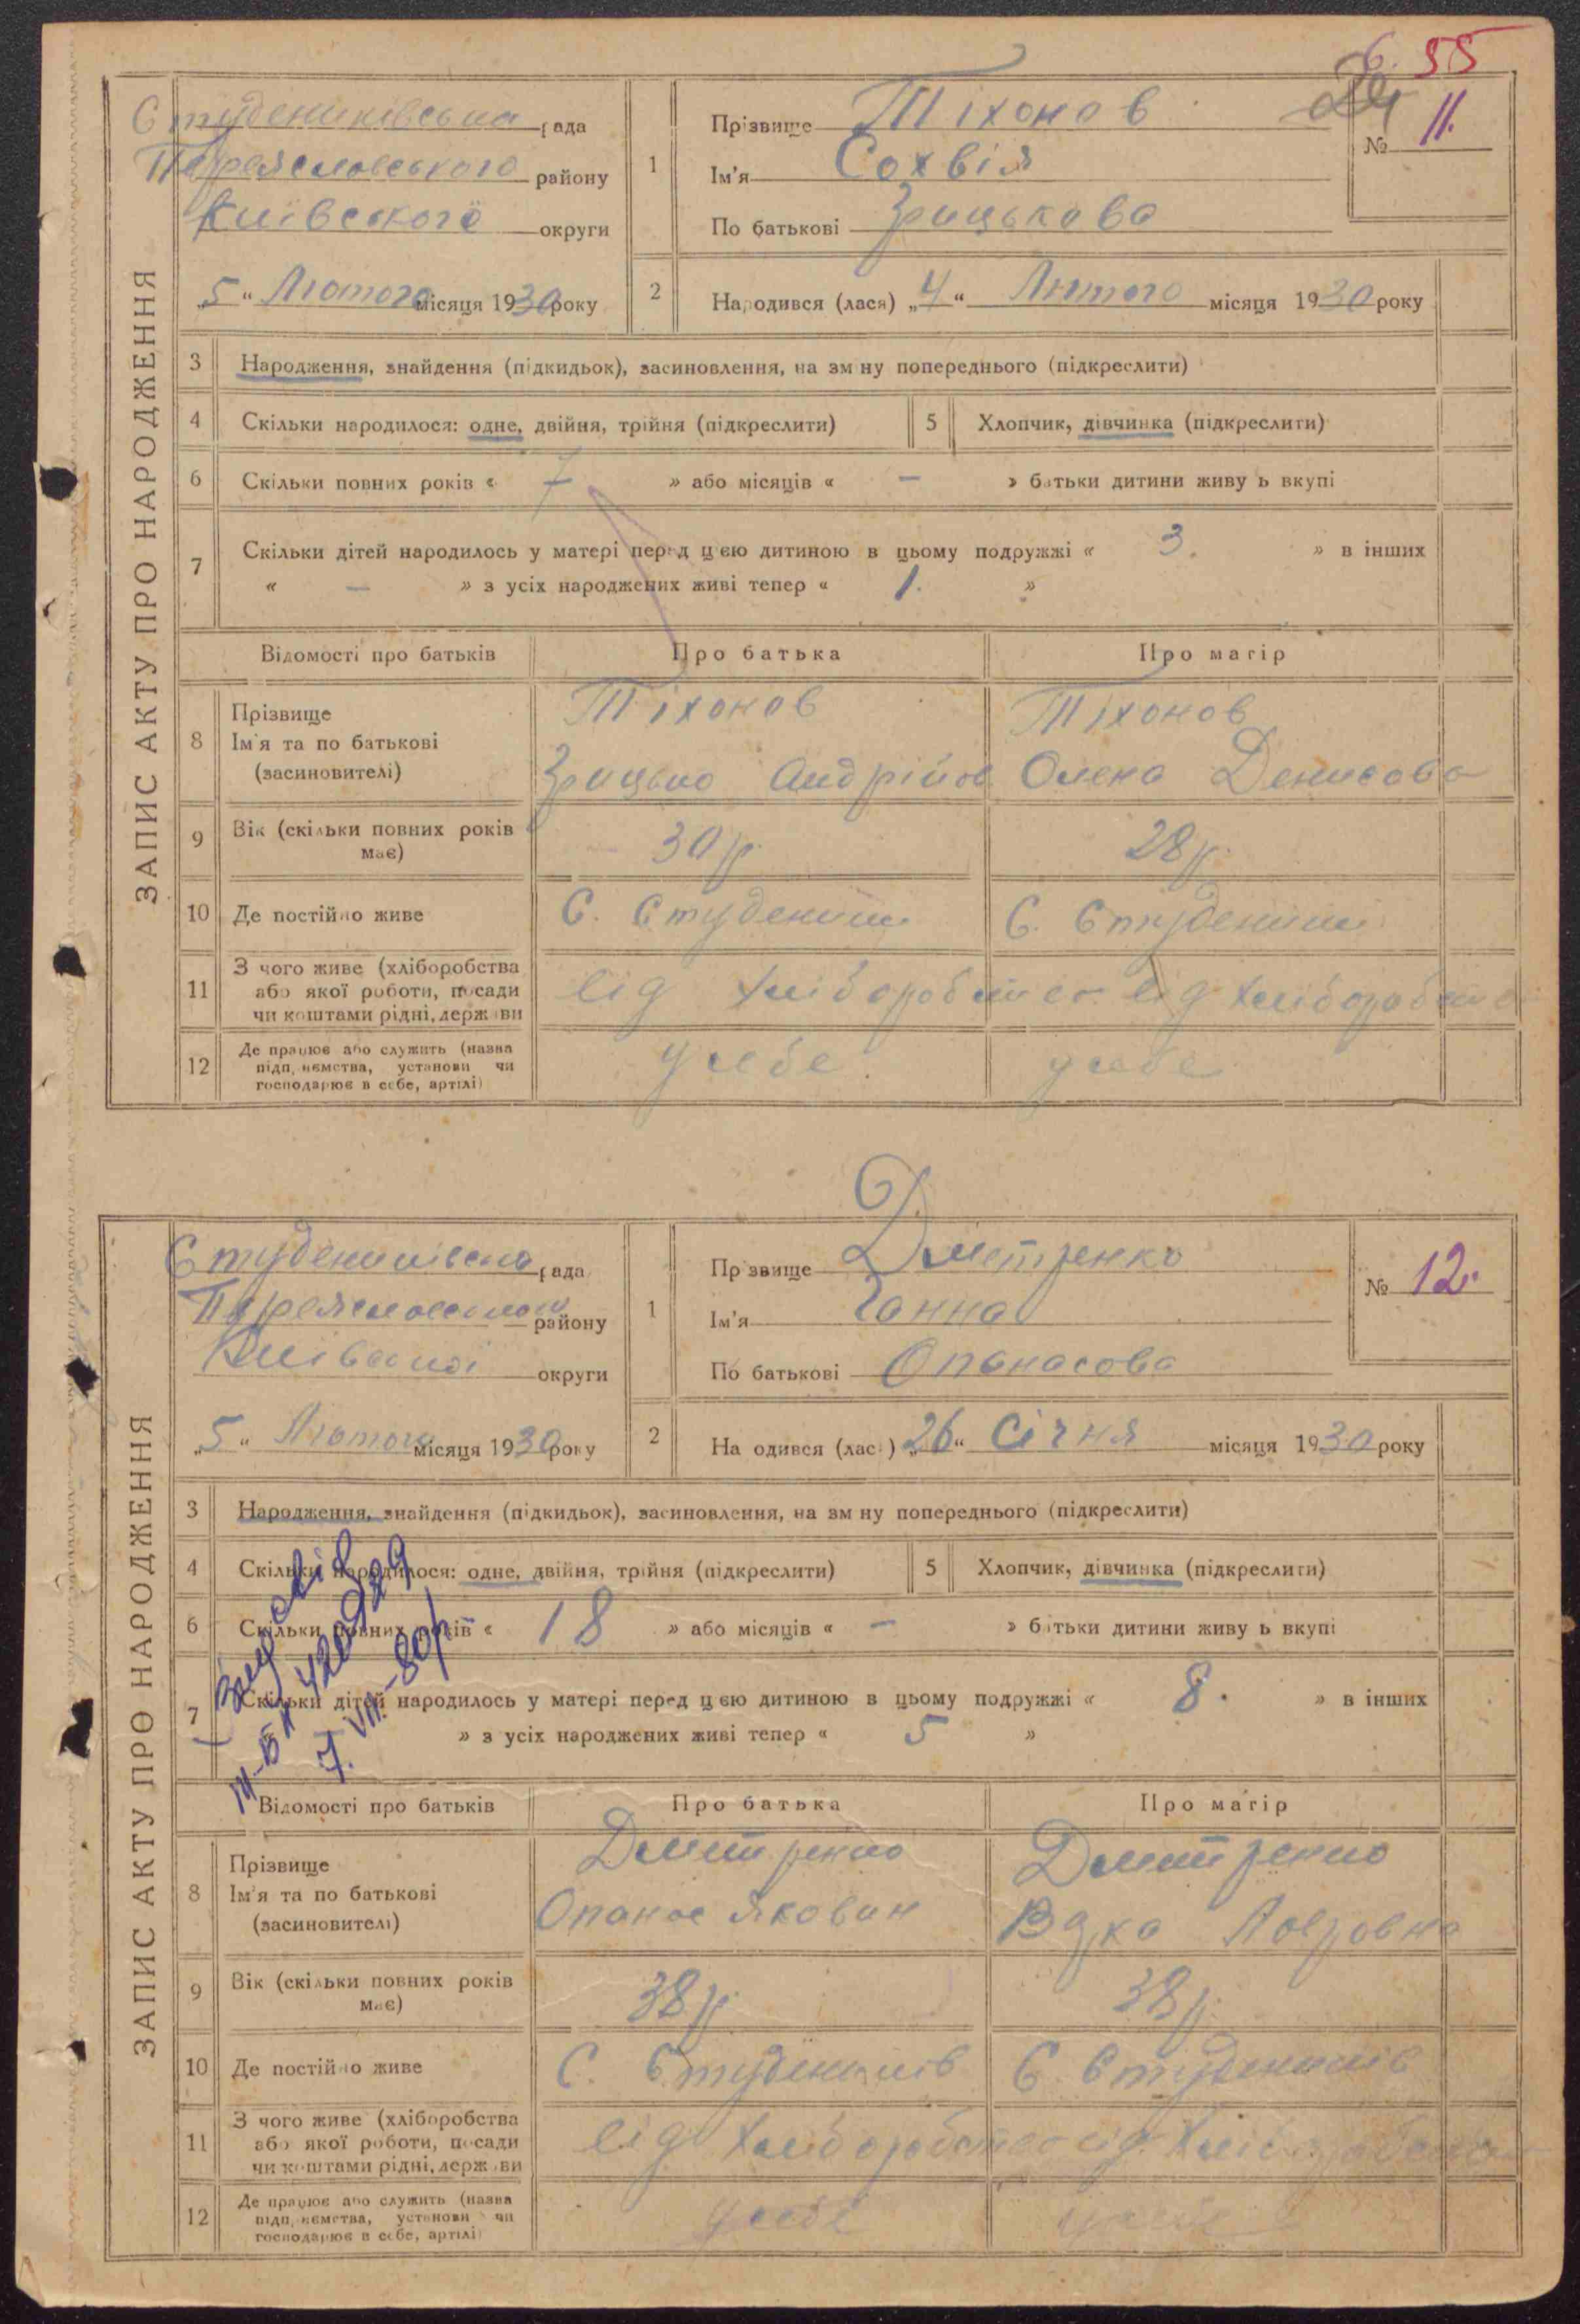 55
ЗАПИС АКТУ ПРО НАРОДЖЕННЯ
Студениківська рада
Переяславського району
Київської округи
„5“ Лютого місяця 1930 року
1
Прізвище Тіхонов
Ім'я Сохвія
По батькові Грицькова
№ 11.
2
Народився (лася) „4“ Лютого місяця 1930 року
3 Народження, знайдення (підкидьок), засиновлення, на зміну попереднього (підкреслити)
4 Скільки народилося: одне, двійня, трійня (підкреслити)
5 Хлопчик, дівчинка (підкреслити)
6 Скільки повних років « 7 » або місяців « – » батьки дитини живуть вкупі
7 Скільки дітей народилось у матері перед цією дитиною в цьому подружжі « 3. » в інших
« – » з усіх народжених живі тепер « 1. »
Відомості про батьків Про батька Про матір
8 Прізвище
Ім'я та по батькові
(засиновителі)
Тіхонов
Грицько Андрійов
Тіхонов
Олена Денисова
9 Вік (скільки повних років
має)
30 р. 28 р.
10 Де постійно живе
С. Студеники С. Студеники
11 З чого живе (хліборобства
або якої роботи, посади
чи коштами рідні, держави
від хліборобства від хліборобства
12 Де працює або служить (назва
підприємства, установи чи
господарює в себе, артілі)
у себе. у себе
ЗАПИС АКТУ ПРО НАРОДЖЕННЯ
Студениківська рада
Переяславського району
Київської округи
„5“ Лютого місяця 1930 року
1
Прізвище Дмитренко
Ім'я Ганна
По батькові Опанасова
№ 12.
2
Народився (лася) „26“ Січня місяця 1930 року
3 Народження, знайдення (підкидьок), засиновлення, на зміну попереднього (підкреслити)
4 Скільки народилося: одне, двійня, трійня (підкреслити)
5 Хлопчик, дівчинка (підкреслити)
6 Скільки повних років « 18 » або місяців « – » батьки дитини живуть вкупі
7 Скільки дітей народилось у матері перед цією дитиною в цьому подружжі « 8. » в інших
» з усіх народжених живі тепер « 5 »
Відомості про батьків Про батька Про матір
8 Прізвище
Ім'я та по батькові
(засиновителі)
Дмитренко
Опанас Якован
Дмитренко
Лавровна
9 Вік (скільки повних років
має)
38 р. 38 р.
10 Де постійно живе
С. Студеників С. Студеників
11 З чого живе (хліборобства
або якої роботи, посади
чи коштами рідні, держави
від хліборобства від хліборобства
12 Де працює або служить (назва
підприємства, установи чи
господарює в себе, артілі)
у себе у себе